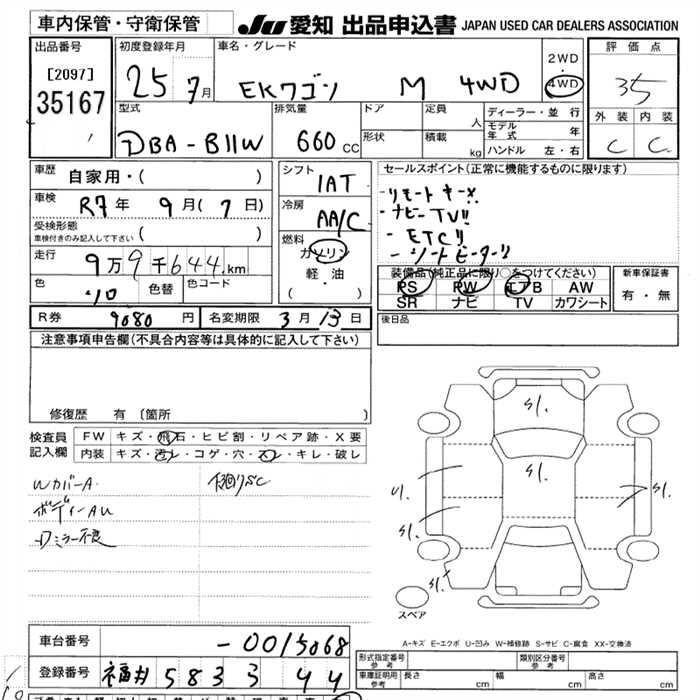 車内保管・守衛保管
JU 愛知 出品申込書 JAPAN USED CAR DEALERS ASSOCIATION
出品番号
[2097]
35167
初度登録年月
25 7月
車名・グレード
EKワゴン M 4WD
2WD
・
4WD
評価点
3.5
外装 内装
C C
型式
DBA-B11W
排気量
660 cc
ドア
形状
定員
人
積載
kg
ディーラー・並行
モデル年式 年
ハンドル 左・右
車歴
自家用・( )
車検
R7年 9月(7日)
受検形態
車検付きのみ記入して下さい ( )
走行
9万9千644km
色
色替
色コード
シフト
1AT
冷房
AA/C
燃料
ガソリン
軽・油
( ・ )
セールスポイント(正常に機能するものに限ります)
- リモートキー
- ナビーTV
- ETC
- シートヒーター
装備品(純正品に限り○をつけてください)
PS PW エアB AW
SR ナビ TV カワシート
新車保証書
有・無
R券 9080円
名変期限 3月13日
後日品
注意事項申告欄(不具合内容等は具体的に記入して下さい)
修復歴 有 〔箇所 〕
検査員
記入欄
FW キズ・飛石・ヒビ割・リペア跡・X要
内装 キズ・汚レ・コゲ・穴・スレ・キレ・破レ
Wカバー A
下廻りSC
ボディーAU
Dミラー不良
S1.
S1.
S1.
S1.
S1.
スペア
A-キズ E-エクボ U-凹み W-補修跡 S-サビ C-腐食 XX-交換済
車台番号
-0015068
登録番号
福井 583 44
形式指定番号
参考
類別区分番号
参考
車庫証明用
参考
長さ cm
幅 cm
高さ cm